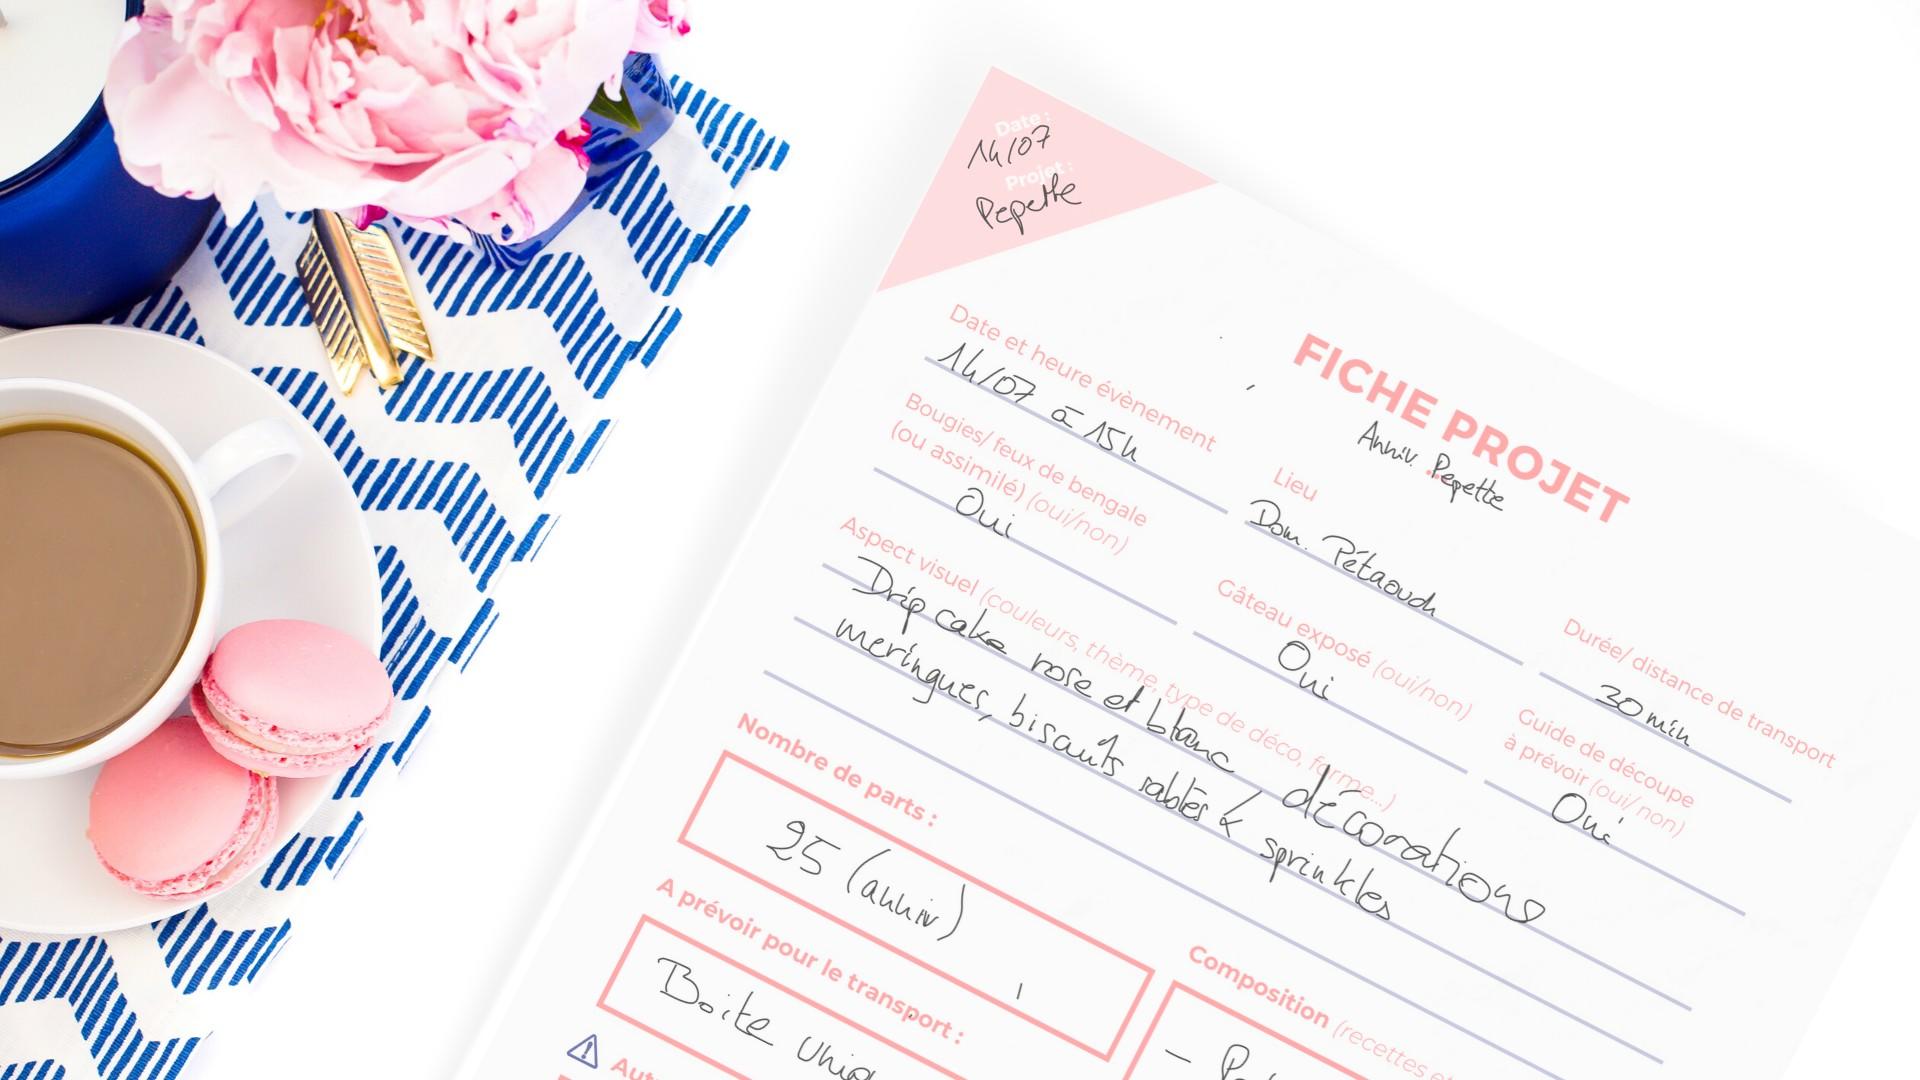 Date :
14/07
Projet :
Pepette
FICHE PROJET
Anniv. Pepette
Date et heure évènement
14/07 à 15h
Lieu
Dom. Pétaouch
Durée/ distance de transport
30 min
Bougies/ feux de bengale
(ou assimilé) (oui/non)
Oui
Gâteau exposé (oui/non)
Oui
Guide de découpe
à prévoir (oui/non)
Oui
Aspect visuel (couleurs, thème, type de déco, forme...)
Drip cake rose et blanc, décorations
meringues, biscuits sablés & sprinkles
Nombre de parts :
25 (anniv)
A prévoir pour le transport :
Boite
Composition (recettes